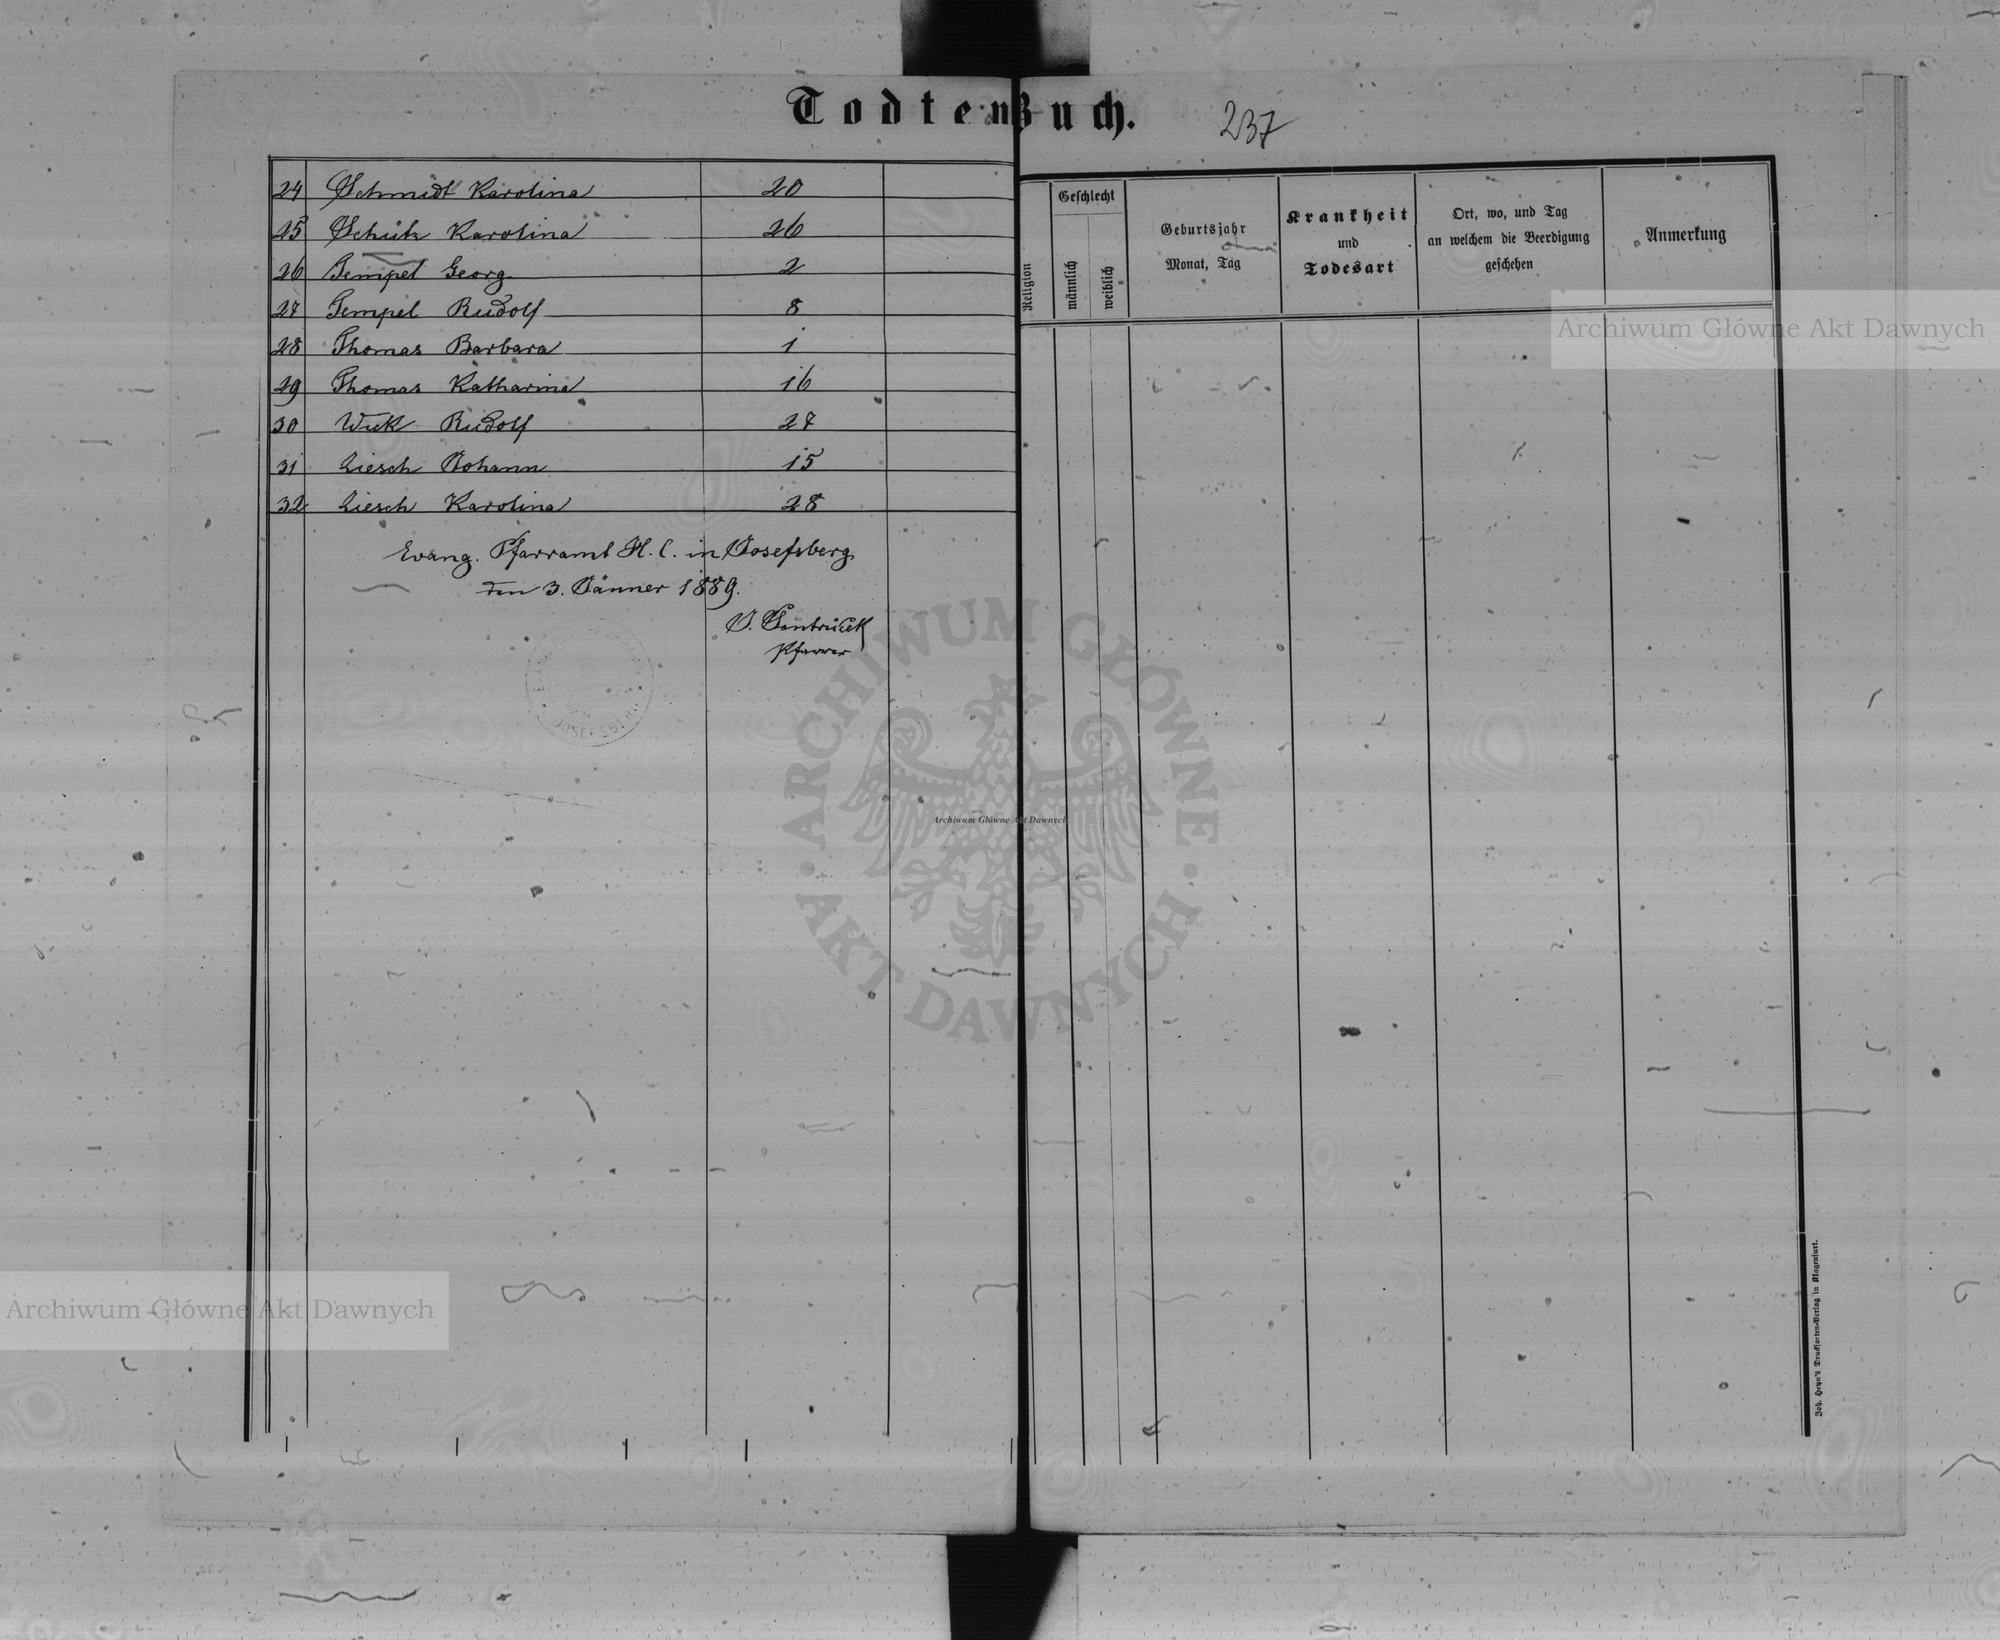 Todtenbuch.
237
24 Schmidt Karolina 20
25 Schütz Karolina 26
26 Tempel Georg 2
27 Tempel Rudolf 8
28 Thomas Barbara 1
29 Thomas Katharina 16
30 Wick Rudolf 27
31 Liesch Johann 15
32 Liesch Karolina 28
Evang. Pfarramt H. C. in Josefsberg
den 3. Jänner 1889.
Pfarrer
JOSEFSBERG
Religion
Geschlecht
männlich
weiblich
Geburtsjahr
Monat, Tag
Krankheit
und
Todesart
Ort, wo, und Tag
an welchem die Beerdigung
geschehen
Anmerkung
Joh. Heyn's Drucksorten-Verlag in Klagenfurt.
Archiwum Główne Akt Dawnych
ARCHIWUM GŁÓWNE AKT DAWNYCH
Archiwum Główne Akt Dawnych
Archiwum Główne Akt Dawnych